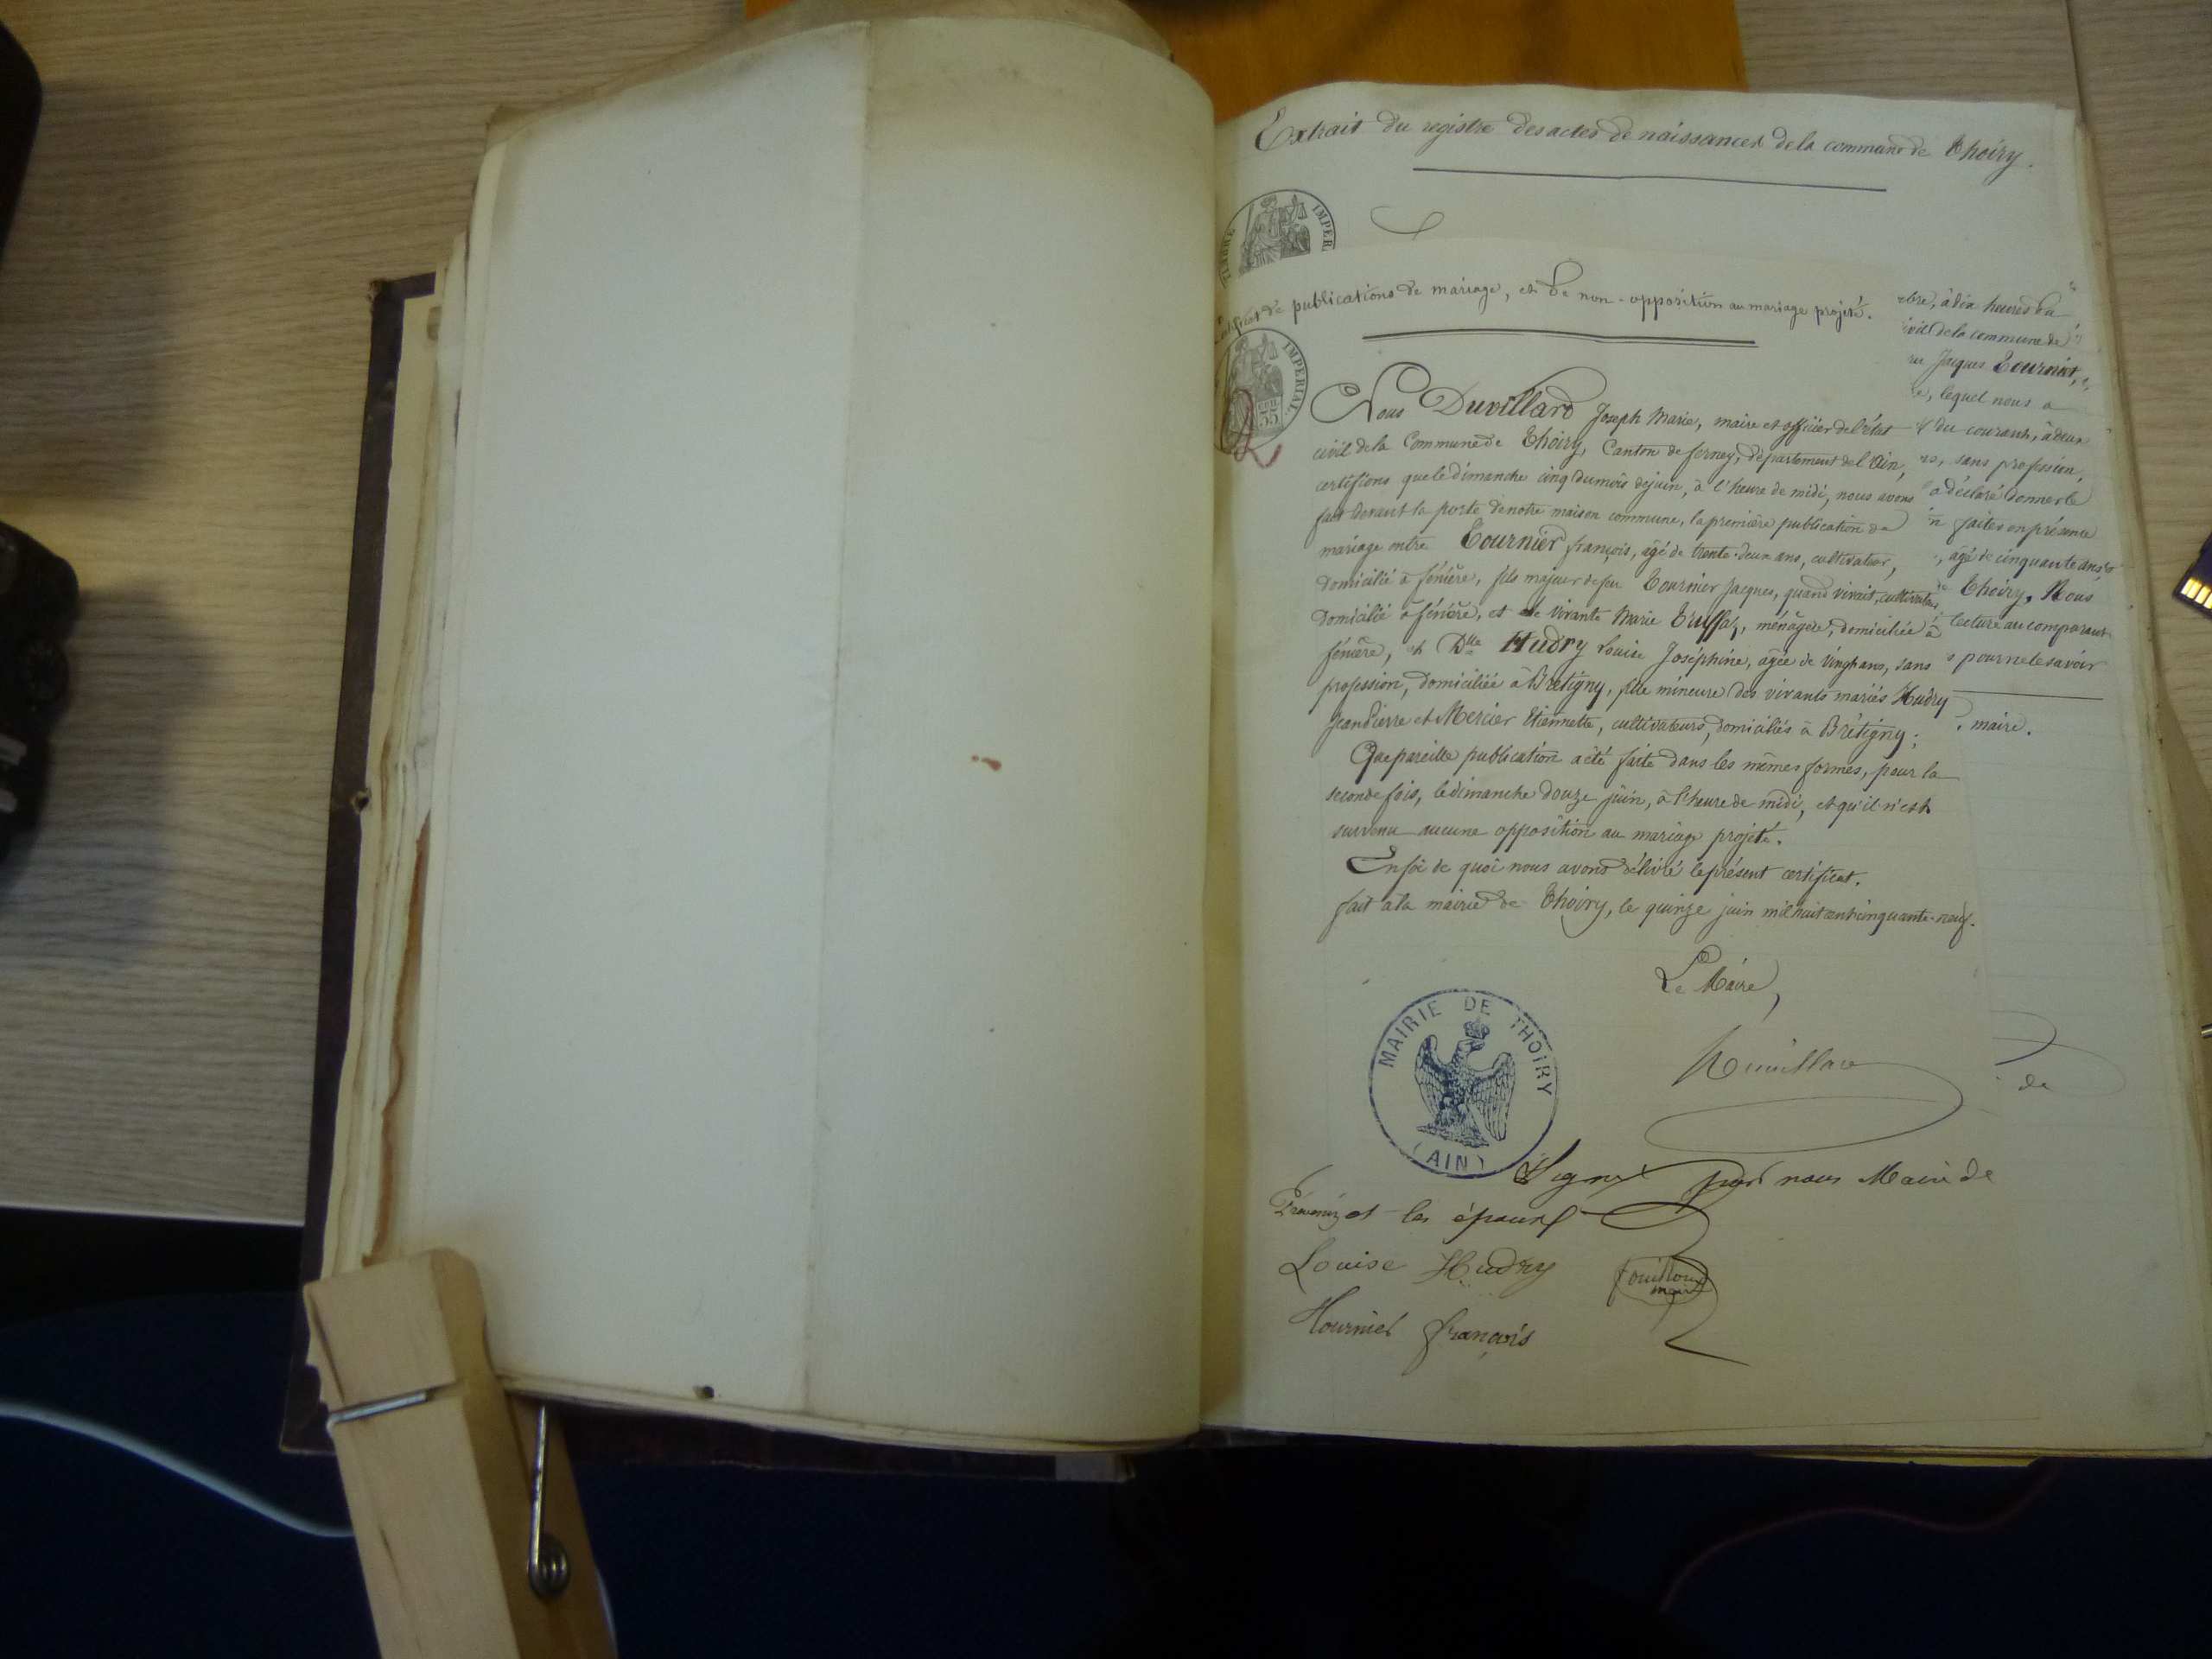 Extrait du registre des actes de naissances de la commune de Thoiry.
TIMBRE IMPER
Certificat de publications de mariage, et de non-opposition au mariage projeté.
IMPERIAL
35
Nous Duvillard Joseph Marie, maire et officier de l'état
civil de la Commune de Thoiry, Canton de ferney, département de l'Ain,
certifions que le dimanche cinq du mois de juin, à l'heure de midi, nous avons
fait devant la porte de notre maison commune, la première publication de
mariage entre Tournier françois, âgé de trente-deux ans, cultivateur,
domicilié à fénière, fils majeur de feu Tournier Jacques, quand vivait, cultivateur,
domicilié à fénière, et de vivante Marie Truffaz, ménagère, domiciliée à
fénière, et Dlle Hudry Louise Joséphine, âgée de vingt ans, sans
profession, domiciliée à Brétigny, fille mineure des vivants mariés Hudry
Jean Pierre et Mercier Etiennette, cultivateurs, domiciliés à Brétigny;
Que pareille publication a été faite dans les mêmes formes, pour la
seconde fois, le dimanche douze juin, à l'heure de midi, et qu'il n'est
survenu aucune opposition au mariage projeté.
En foi de quoi nous avons délivré le présent certificat.
fait à la mairie de Thoiry, le quinze juin mil huit cent cinquante-neuf.
Le Maire,
Duvillard
MAIRIE DE THOIRY
(AIN)
Signé par nous Maire de
Prévessin et les époux
Louise Hudry
fouilloux
maire
Tournier françois
bre, à dix heures du
ivil de la commune de
Jacques Tournier,
lequel nous a
du courant, à deux
sans profession,
a déclaré donner le
faites en présence
âgé de cinquante ans
de Thoiry. Nous
lecture au comparant
pour ne le savoir
maire.
de